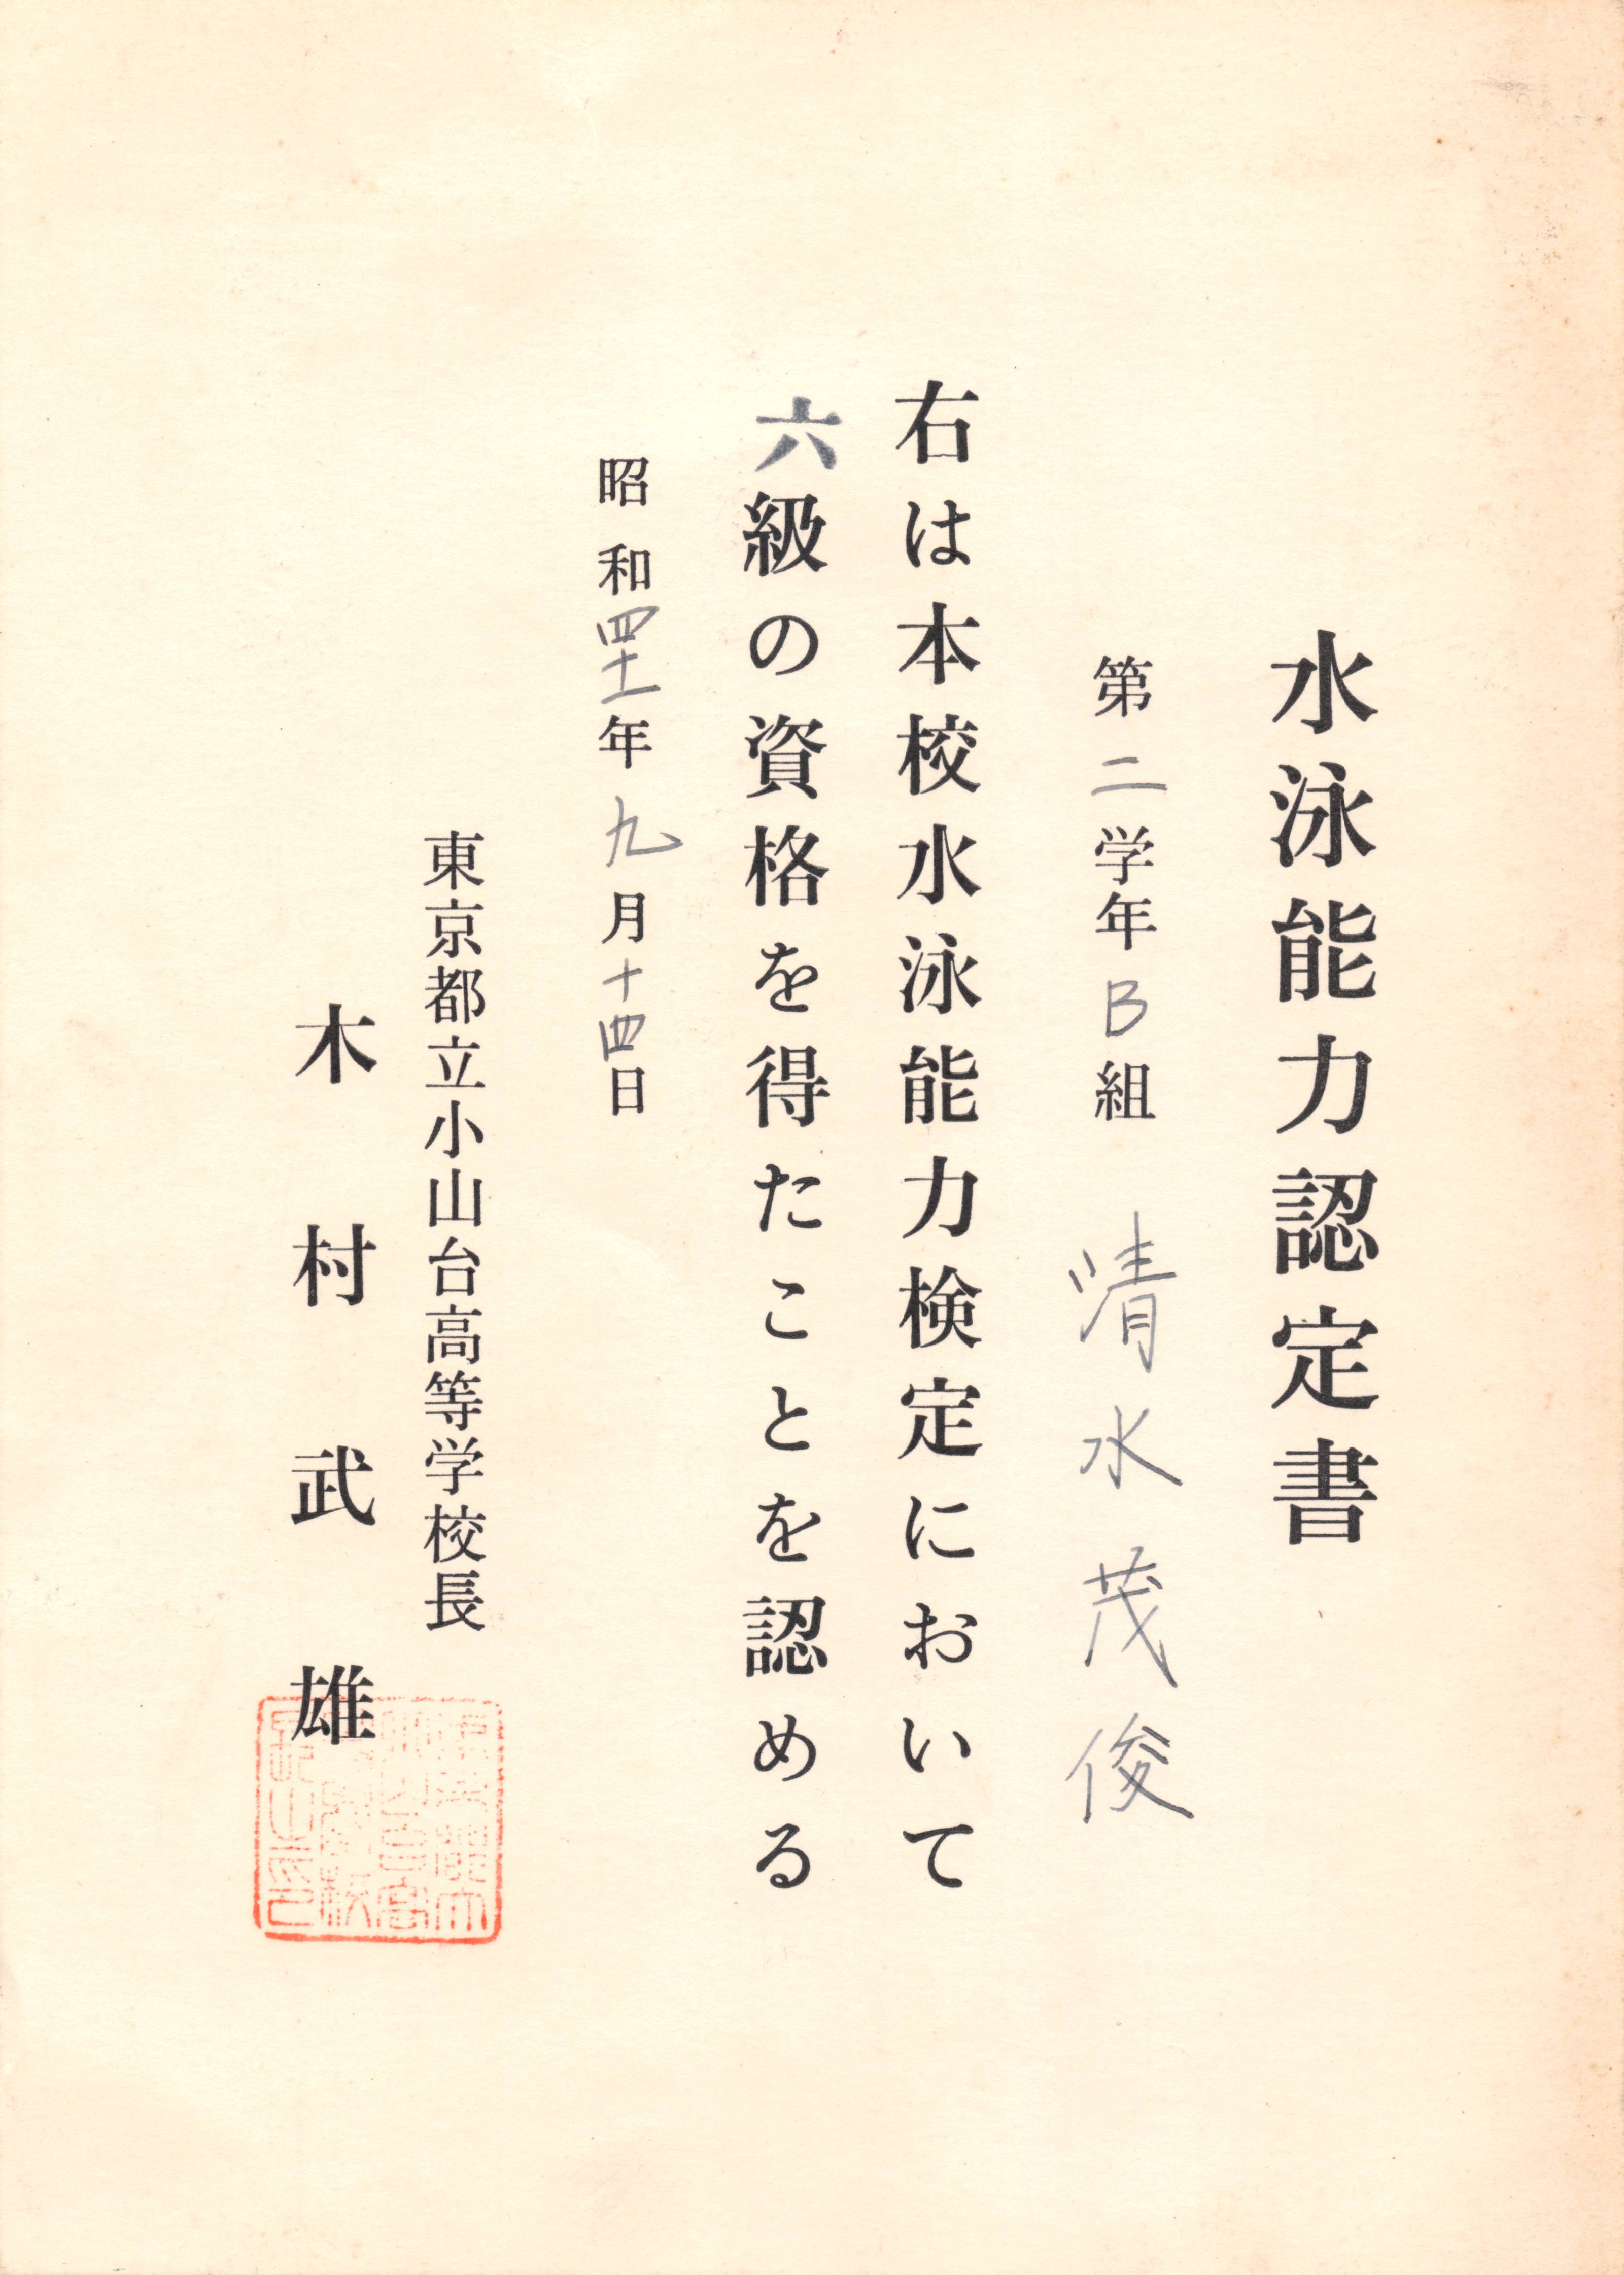 水泳能力認定書
第二学年B組 清水茂俊
右は本校水泳能力検定において
六級の資格を得たことを認める
昭和四十一年九月十四日
東京都立小山台高等学校長
木村武雄